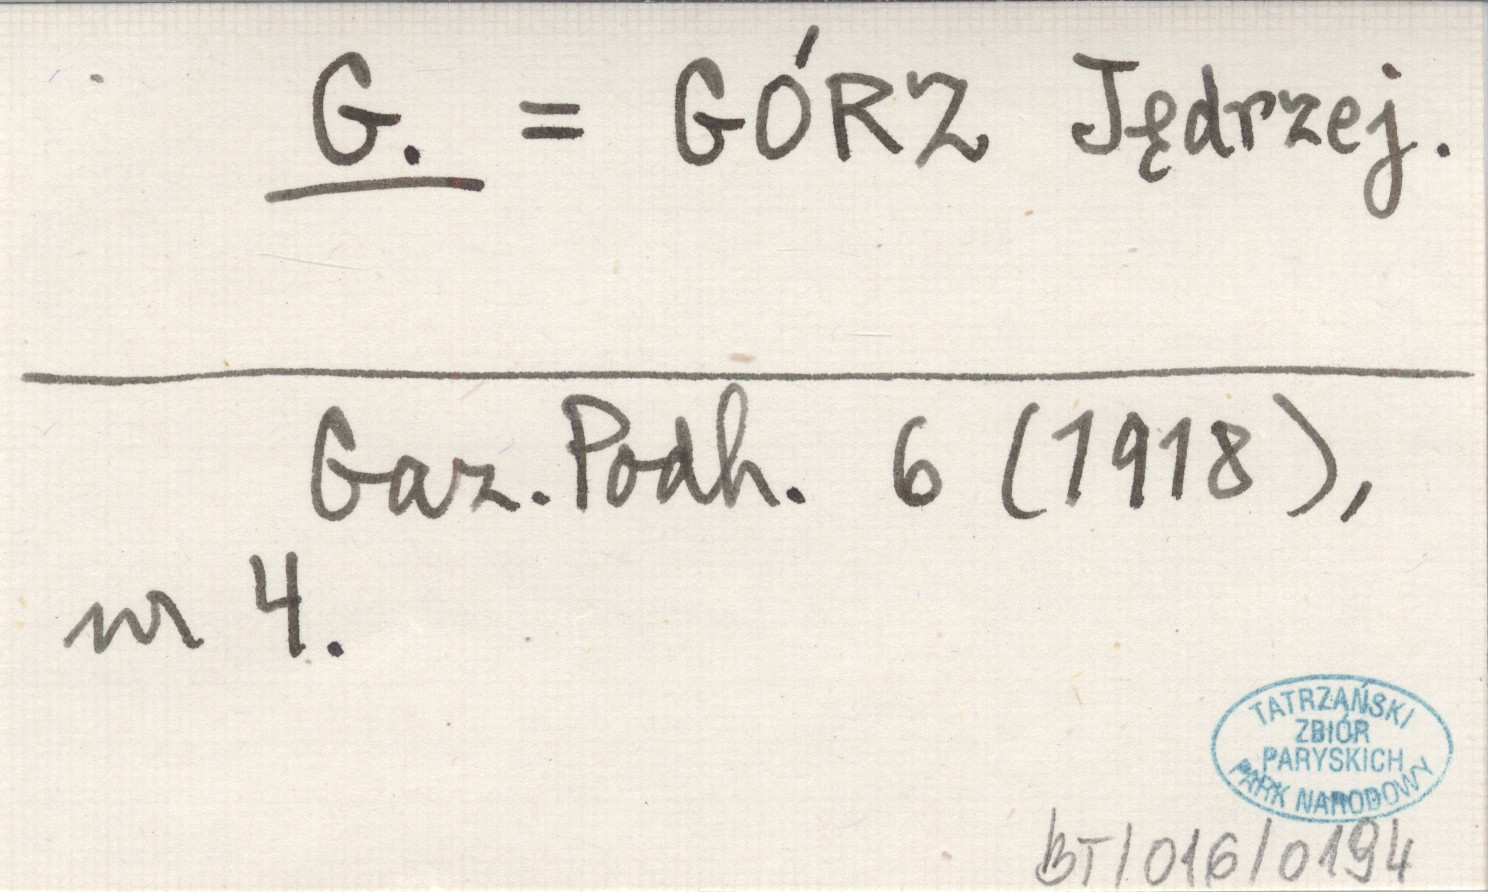 G. = GÓRZ Jędrzej.
Gaz. Podh. 6 (1918),
nr 4.
TATRZAŃSKI
ZBIÓR
PARYSKICH
PARK NARODOWY
BT/016/0194